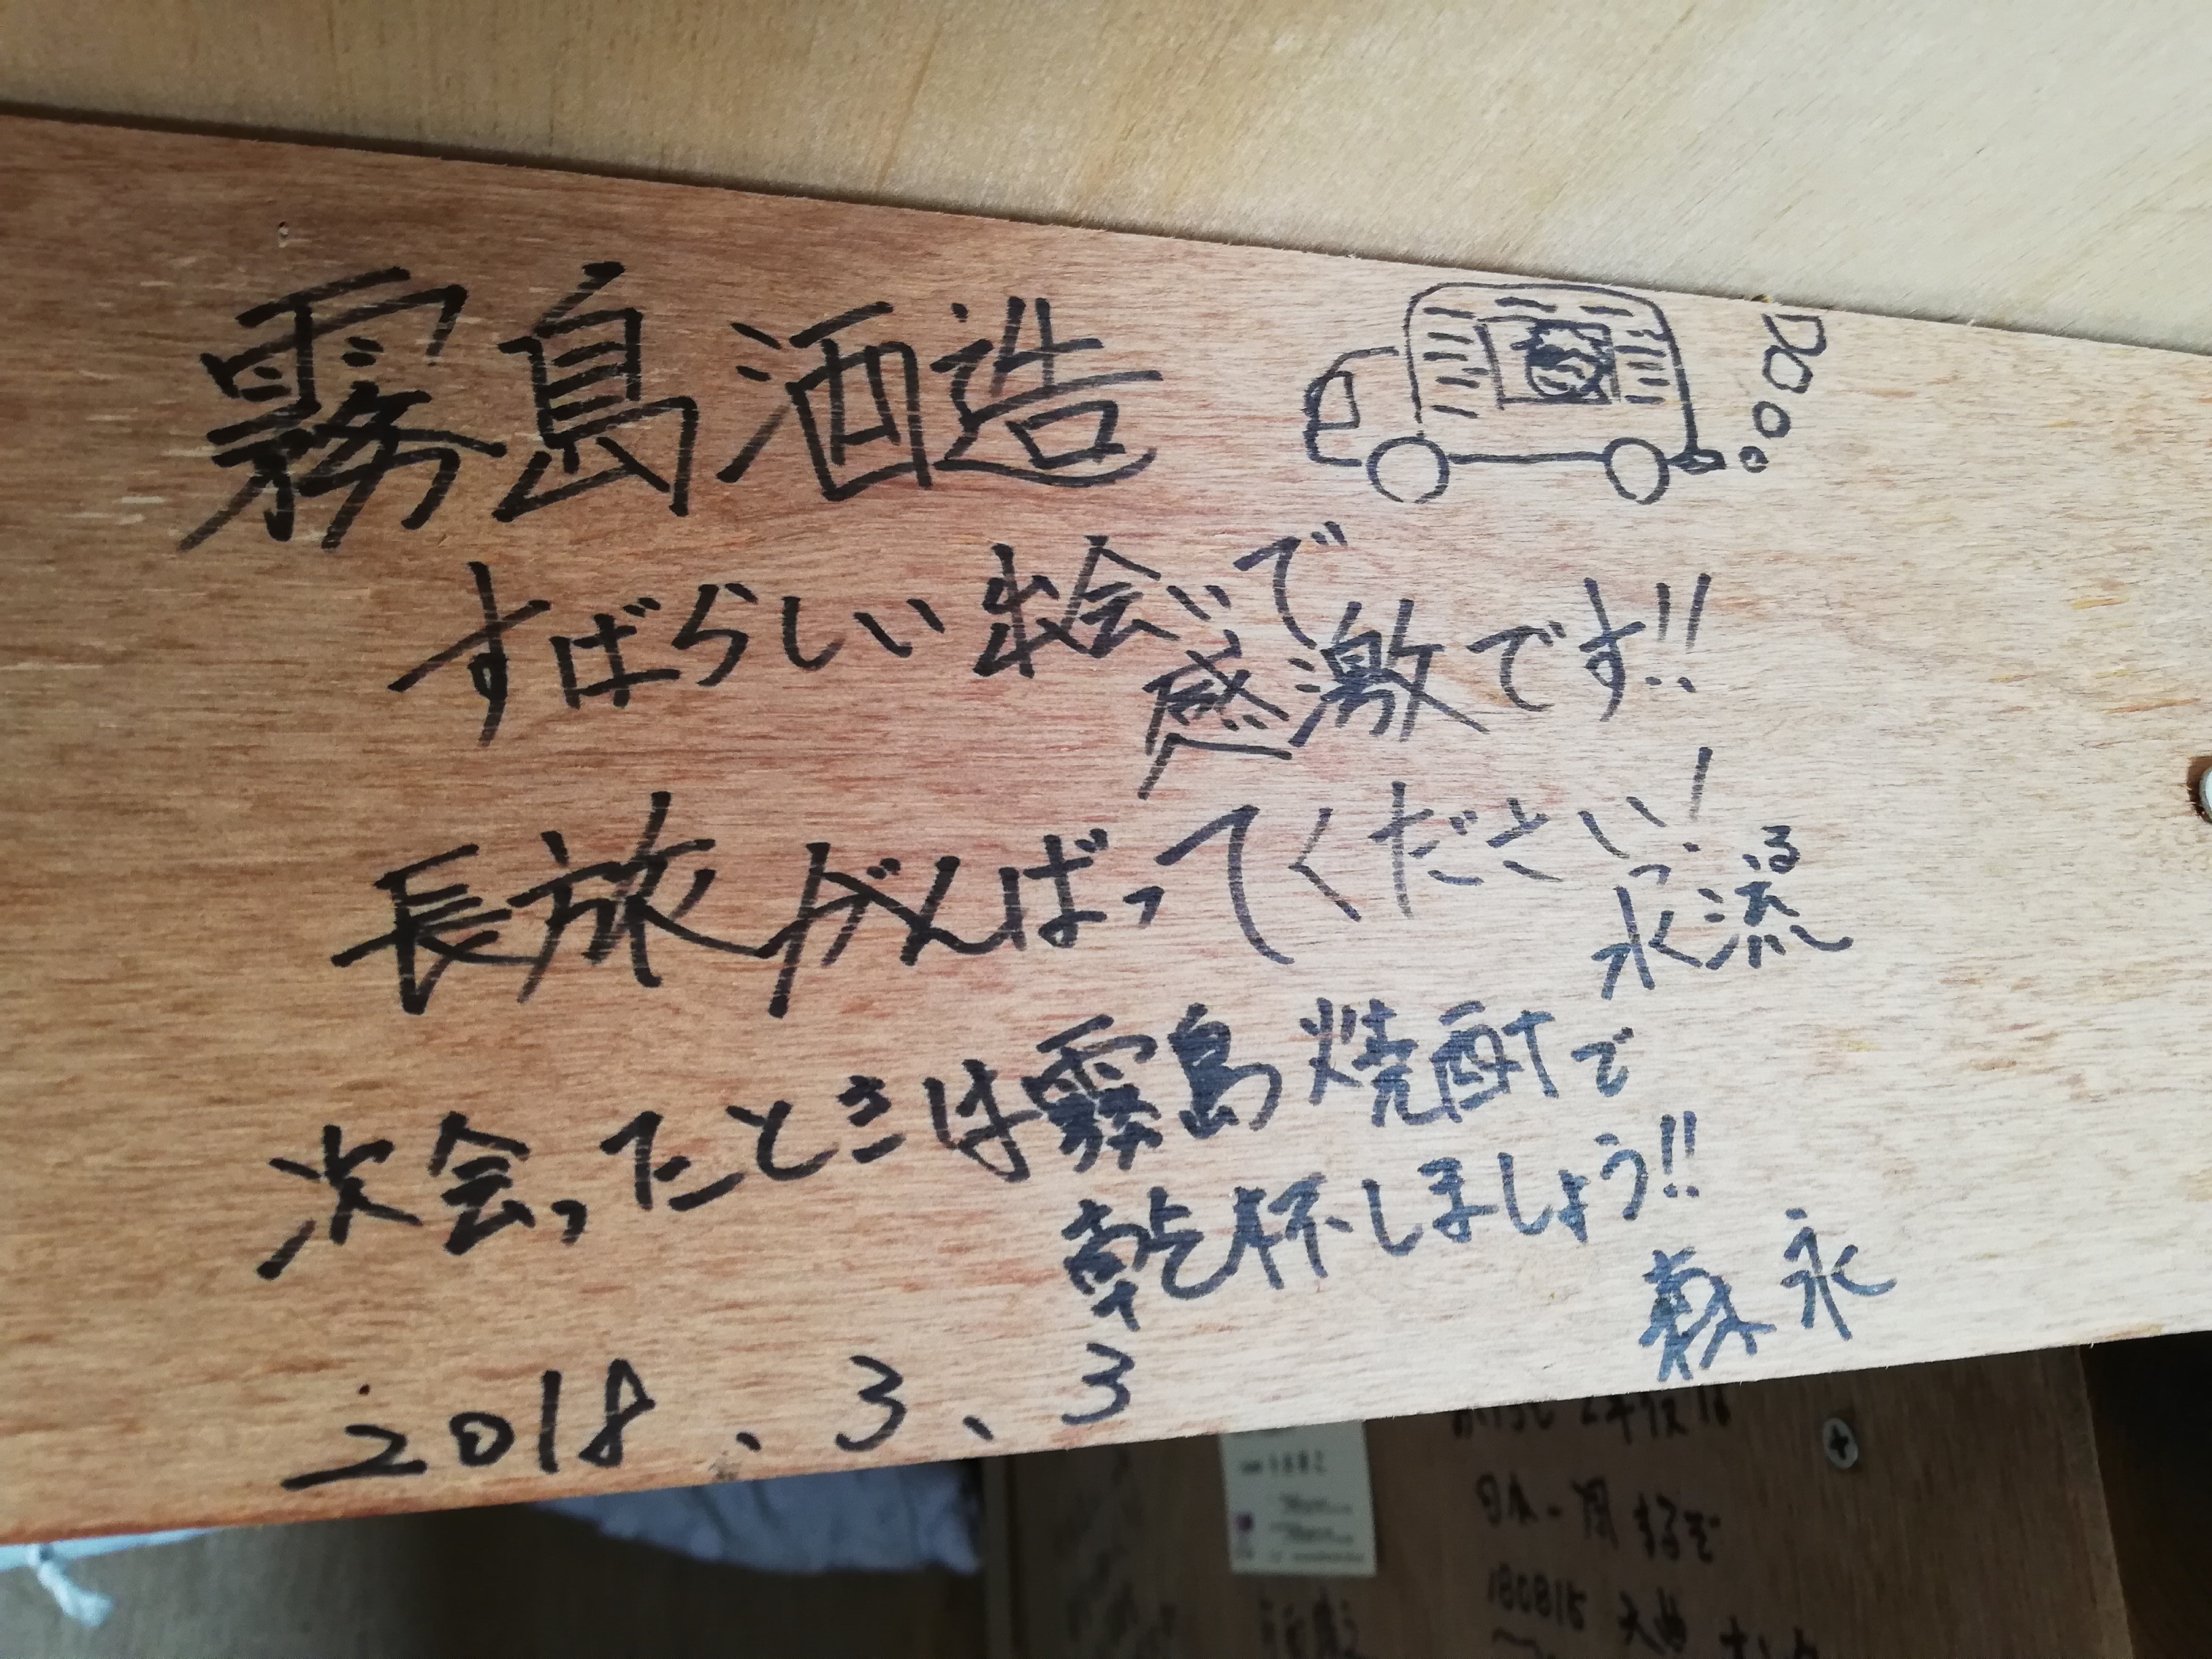 霧島酒造
すばらしい出会いで
感激です!!
長旅がんばってください!
水流
つる
次会ったときは霧島焼酎で
乾杯しましょう!!
森永
2018、3、3
180815